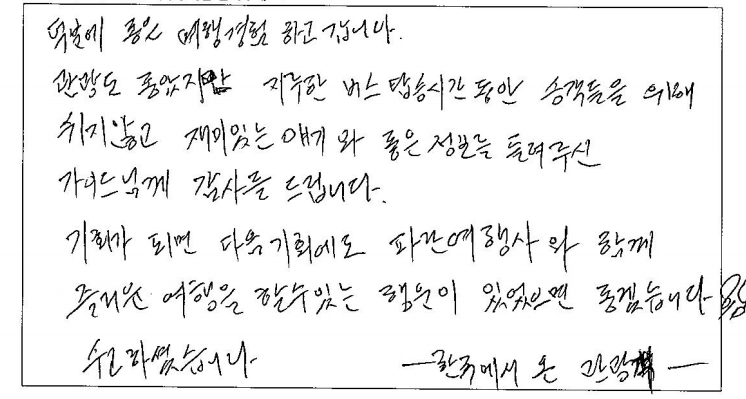 덕분에 좋은 여행경험 하고 갑니다.
관광도 좋았지만 지루한 버스 탑승시간 동안 승객들을 위해
쉬지않고 재미있는 얘기와 좋은 정보를 들려주신
가이드님께 감사를 드립니다.
기회가 되면 다음 기회에도 파란여행사와 함께
즐거운 여행을 할수있는 행운이 있었으면 좋겠습니다
수고하셨습니다 -한국에서 온 관광객-